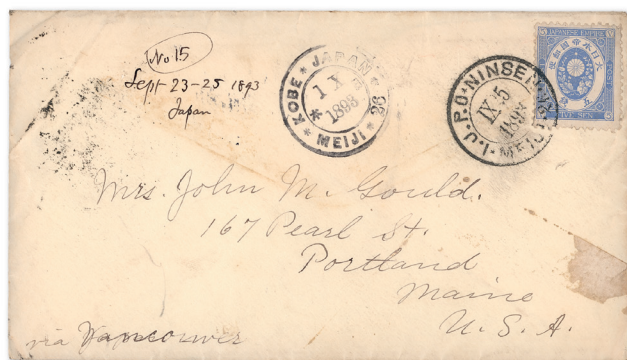 No 15
Sept 23-25 1893
Japan
KOBE * JAPAN
1 X
1893
* MEIJI * 26
I.J.P.O. NINSEN
IX 5
1893
MEIJI
JAPANESE EMPIRE
大日本帝國郵便
5 SEN
Mrs. John M. Gould.
167 Pearl St.
Portland
Maine
U.S.A.
via Vancouver